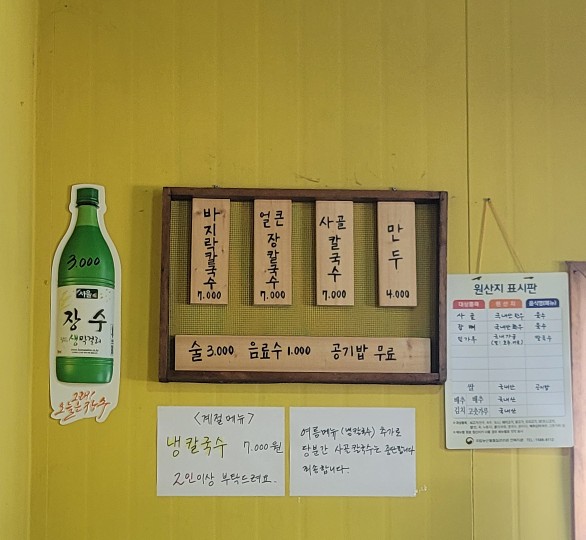 3.000
서울
장수
생막걸리
그래!
오늘은 장수
바지락칼국수
7.000
얼큰장칼국수
7.000
사골칼국수
7.000
만두
4.000
술 3.000 음료수 1.000 공기밥 무료
<계절메뉴>
냉칼국수 7.000원
2인이상 부탁드려요.
여름메뉴 (냉칼국수) 추가로
당분간 사골칼국수는 중단합니다
죄송합니다.
원산지 표시판
대상품목 원산지 음식명(메뉴)
사골 국내산 한우 육수
국내산 육수
밀가루 칼국수
쌀 국내산 공기밥
배추 배추 국내산
김치 고춧가루 국내산